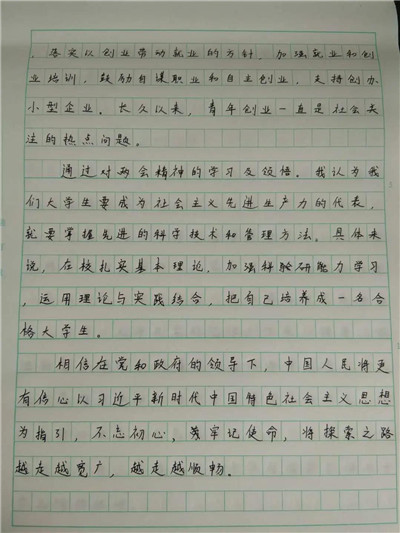 ，落实以创业带动就业的方针，加强就业和创
业培训，鼓励自谋职业和自主创业，支持创办
小型企业。长久以来，青年创业一直是社会关
注的热点问题。
通过对两会精神的学习及领悟。我认为我
们大学生要成为社会主义先进生产力的代表，
就要掌握先进的科学技术和管理方法。具体来
说，在校扎实基本理论，加强科研能力学习
，运用理论与实践结合，把自己培养成一名合
格大学生。
相信在党和政府的领导下，中国人民将更
有信心以习近平新时代中国特色社会主义思想
为指引，不忘初心，牢记使命，将探索之路
越走越宽广，越走越顺畅。